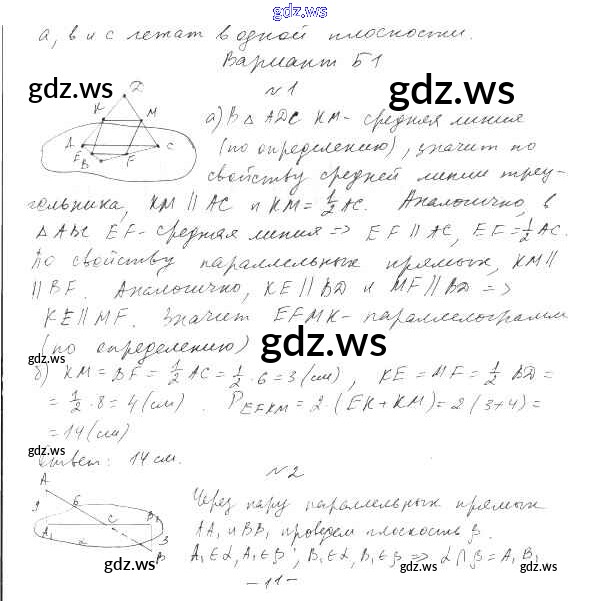 gdz.ws
а, в и с лежат в одной плоскости.
Вариант Б1
№1
gdz.ws
gdz.ws
D
K
M
A
C
E
F
B
а) В △ ADC KM - средняя линия
(по определению), значит по
свойству средней линии треу-
гольника, KM || AC и KM = 1/2 AC. Аналогично, в
△ ABC EF - средняя линия => EF || AC, EF = 1/2 AC.
По свойству параллельных прямых, KM ||
|| BF. Аналогично, KE || BD и MF || BD =>
KE || MF. Значит EFMK - параллелограмм
(по определению)
gdz.ws
б) KM = BF = 1/2 AC = 1/2 · 6 = 3 (см), KE = MF = 1/2 BD =
= 1/2 · 8 = 4 (см). P EFKM = 2 · (EK + KM) = 2 (3+4) =
= 14 (см)
gdz.ws
gdz.ws
Ответ: 14 см.
№2
A
6
C
B1
A1
α
3
B
Через пару параллельных прямых
AA1 и BB1 проведем плоскость β.
A1 ∈ α, A1 ∈ β, B1 ∈ α, B1 ∈ β => α ∩ β = A1 B1
gdz.ws
gdz.ws
- 11 -